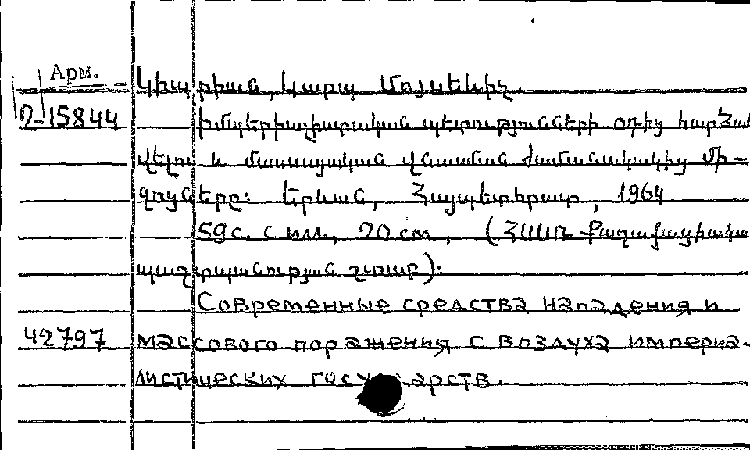 Арм.
Կիպրիան, Կարապ Մովսեսիչ
Ռ-15844 Իմպերիալիստական պետությունների օդից հարձակ
վելու և մասսայական վնասման ժամանակակից մի-
ջոցները։ Երևան, Հայպետհրատ, 1964
59 с. с илл., 20 cm, (ՀՍՍՌ Քաղաքացիական
պաշտպանության շտաբ)։
Современные средства нападения и
42797 массового поражения с воздуха империа-
листических государств.